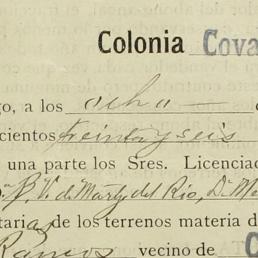 Colonia Cova
go, a los ocho
cientos treinta y seis
una parte los Sres. Licencia
V. de Marty del Rio, D.
taria de los terrenos materia d
Ramos vecino de C